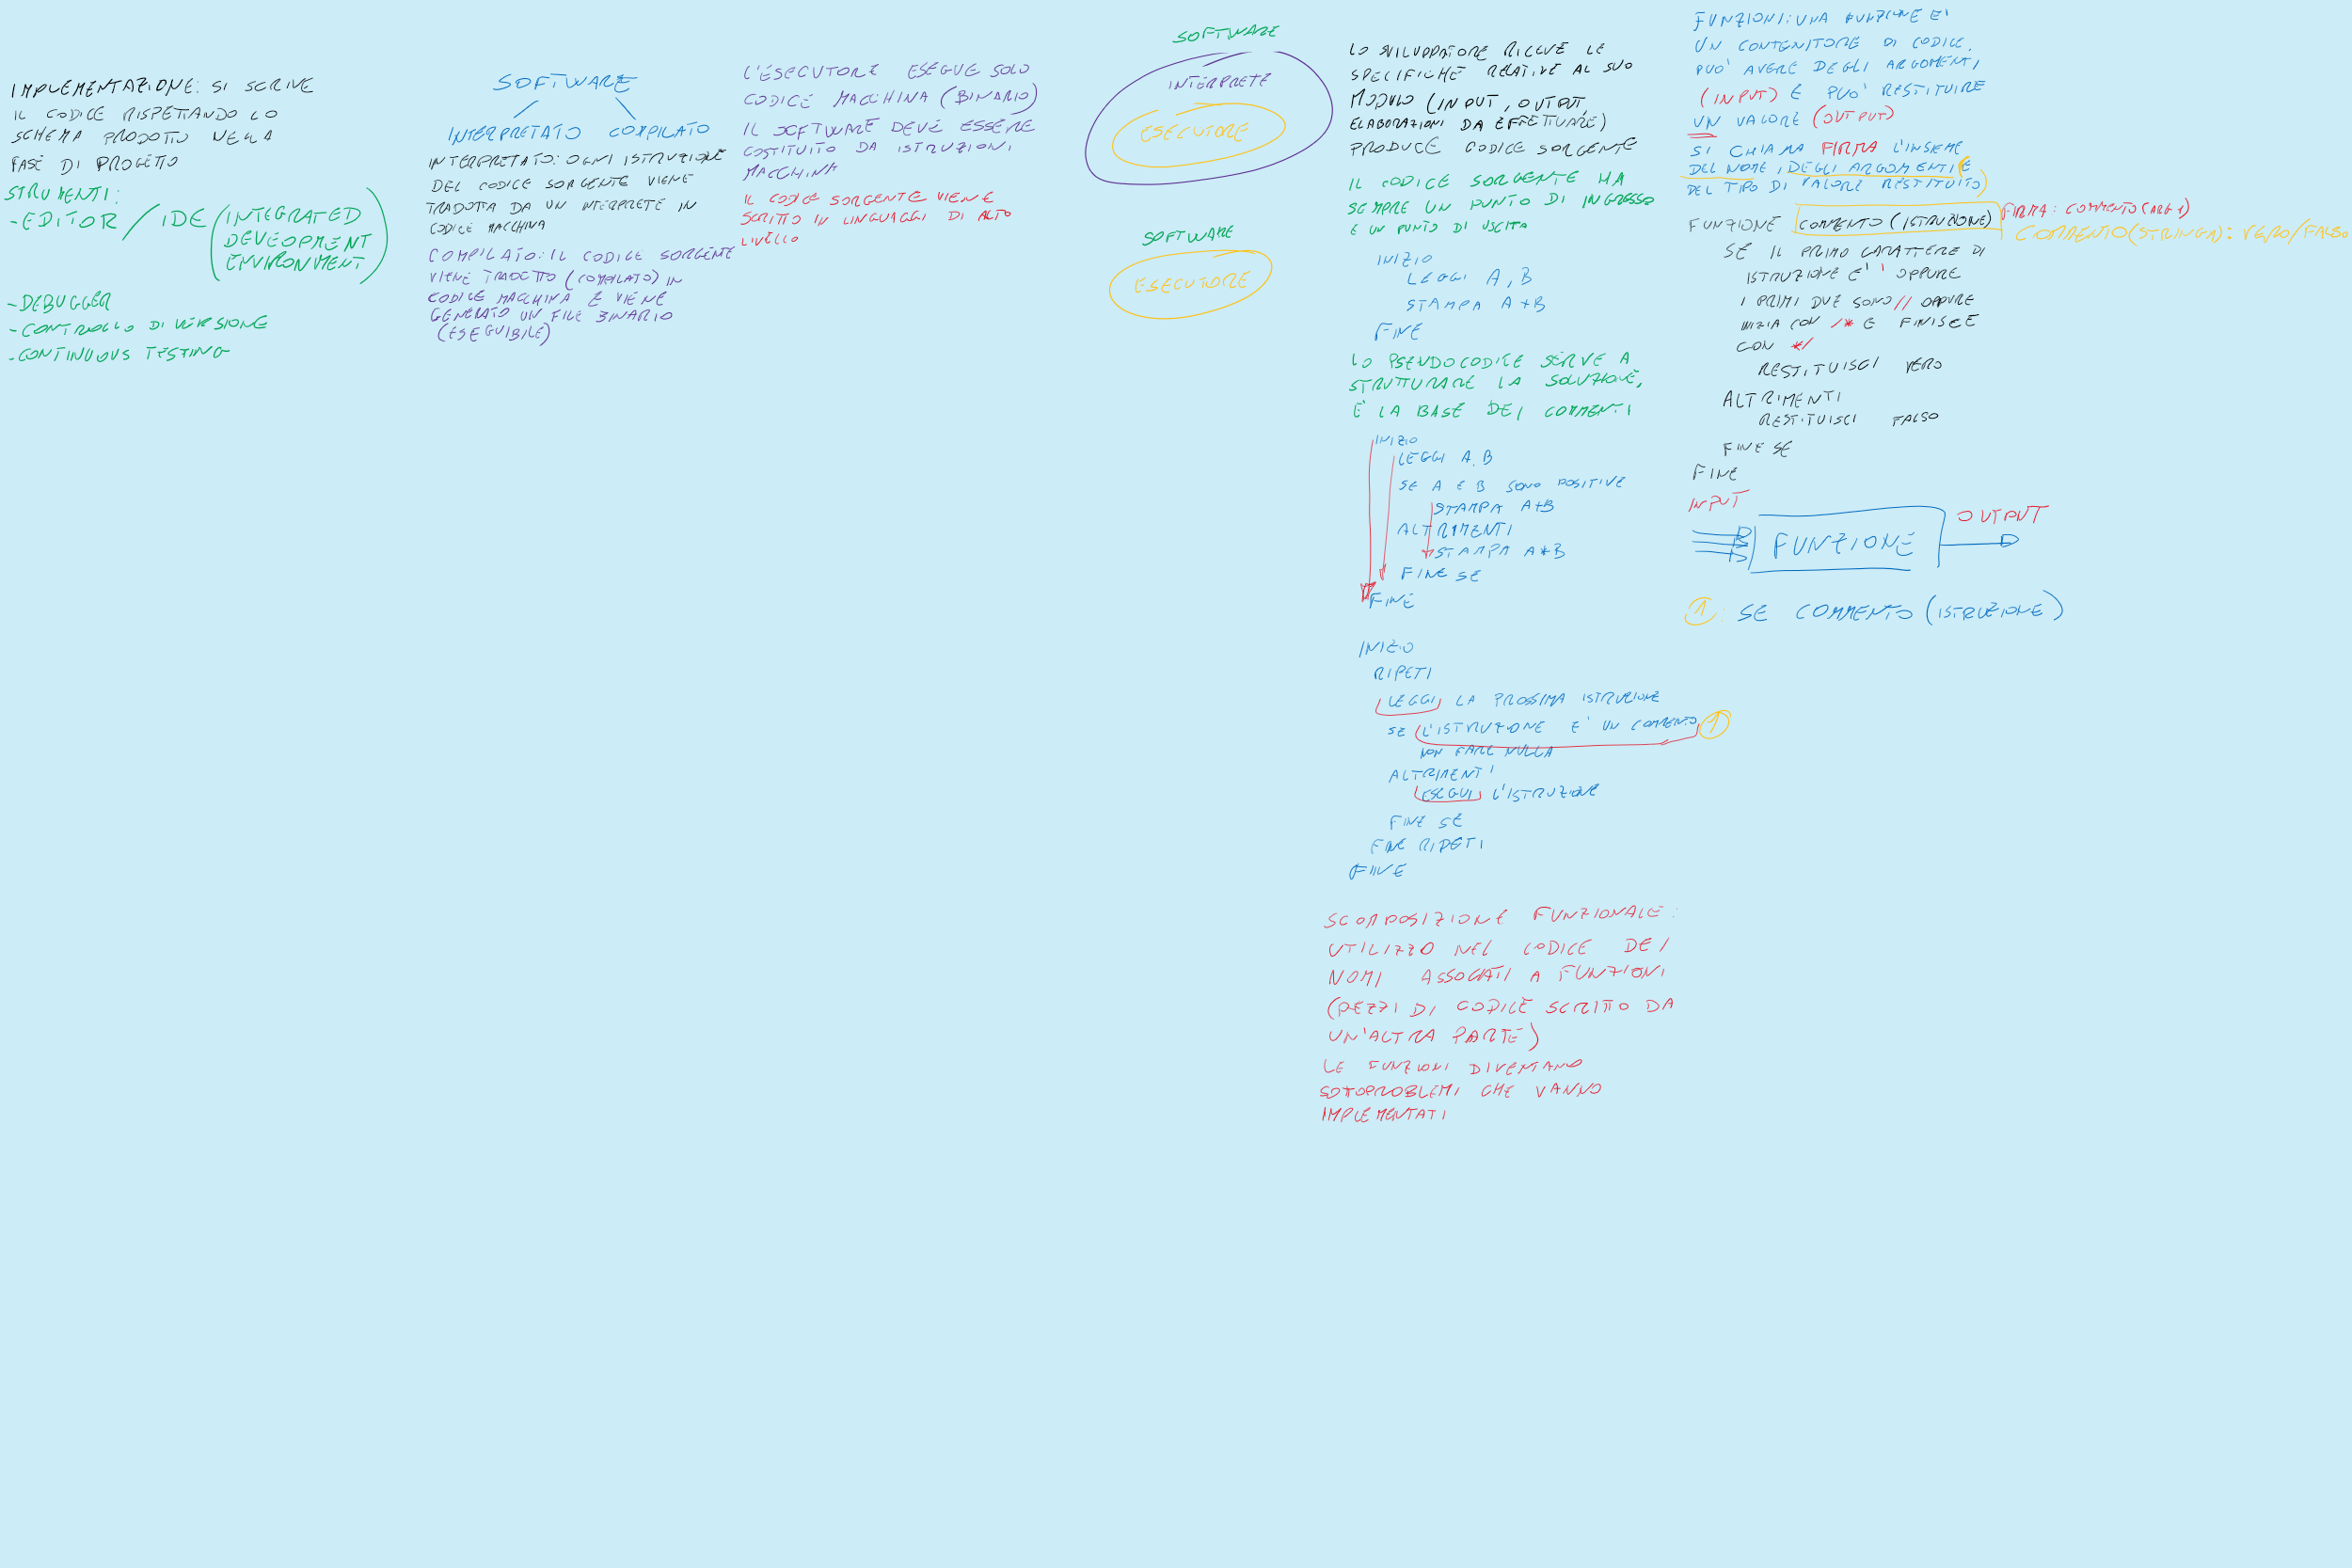 IMPLEMENTAZIONE: SI SCRIVE
IL CODICE RISPETTANDO LO
SCHEMA PRODOTTO NELLA
FASE DI PROGETTO
STRUMENTI:
-EDITOR / IDE (INTEGRATED
DEVEOPMENT
ENVIRONMENT)
-DEBUGGER
-CONTROLLO DI VERSIONE
-CONTINUOUS TESTING
SOFTWARE
INTERPRETATO COMPILATO
INTERPRETATO: OGNI ISTRUZIONE
DEL CODICE SORGENTE VIENE
TRADOTTA DA UN INTERPRETE IN
CODICE MACCHINA
COMPILATO: IL CODICE SORGENTE
VIENE TRADOTTO (COMPILATO) IN
CODICE MACCHINA E VIENE
GENERATO UN FILE BINARIO
(ESEGUIBILE)
L'ESECUTORE ESEGUE SOLO
CODICE MACCHINA (BINARIO)
IL SOFTWARE DEVE ESSERE
COSTITUITO DA ISTRUZIONI
MACCHINA
IL CODICE SORGENTE VIENE
SCRITTO IN LINGUAGGI DI ALTO
LIVELLO
SOFTWARE
INTERPRETE
ESECUTORE
SOFTWARE
ESECUTORE
LO SVILUPPATORE RICEVE LE
SPECIFICHE RELATIVE AL SUO
MODULO (INPUT, OUTPUT,
ELABORAZIONI DA EFFETTUARE)
PRODUCE CODICE SORGENTE
IL CODICE SORGENTE HA
SEMPRE UN PUNTO DI INGRESSO
E UN PUNTO DI USCITA
INIZIO
LEGGI A, B
STAMPA A+B
FINE
LO PSEUDOCODICE SERVE A
STRUTTURARE LA SOLUZIONE,
È LA BASE DEI COMMENTI
INIZIO
LEGGI A, B
SE A E B SONO POSITIVE
STAMPA A+B
ALTRIMENTI
STAMPA A*B
FINE SE
FINE
INIZIO
RIPETI
LEGGI LA PROSSIMA ISTRUZIONE
SE L'ISTRUZIONE E' UN COMMENTO 1
NON FARE NULLA
ALTRIMENTI
ESEGUI L'ISTRUZIONE
FINE SE
FINE RIPETI
FINE
SCOMPOSIZIONE FUNZIONALE:
UTILIZZO NEL CODICE DEI
NOMI ASSOCIATI A FUNZIONI
(PEZZI DI CODICE SCRITTO DA
UN'ALTRA PARTE)
LE FUNZIONI DIVENTANO
SOTTOPROBLEMI CHE VANNO
IMPLEMENTATI
FUNZIONI: UNA FUNZIONE E'
UN CONTENITORE DI CODICE.
PUO' AVERE DEGLI ARGOMENTI
(INPUT) E PUO' RESTITUIRE
UN VALORE (OUTPUT)
SI CHIAMA FIRMA L'INSIEME
DEL NOME, DEGLI ARGOMENTI (E
DEL TIPO DI VALORE RESTITUITO)
FUNZIONE COMMENTO (ISTRUZIONE) FIRMA: COMMENTO(ARG1)
COMMENTO(STRINGA): VERO/FALSO
SE IL PRIMO CARATTERE DI
ISTRUZIONE E' ' OPPURE
I PRIMI DUE SONO // OPPURE
INIZIA CON /* E FINISCE
CON */
RESTITUISCI VERO
ALTRIMENTI
RESTITUISCI FALSO
FINE SE
FINE
INPUT
FUNZIONE
OUTPUT
1: SE COMMENTO (ISTRUZIONE)